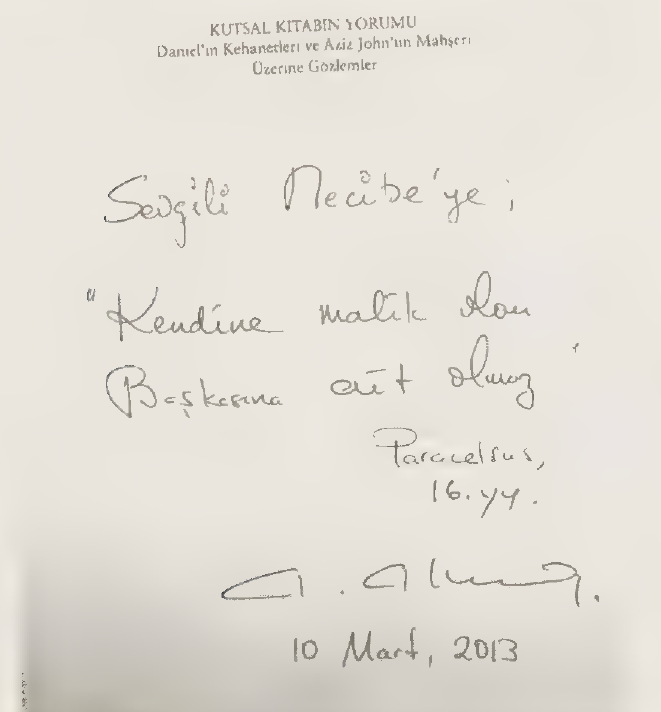 KUTSAL KİTABIN YORUMU
Daniel'in Kehanetleri ve Aziz John'un Mahşeri
Üzerine Gözlemler
Sevgili Necibe'ye;
"Kendine malik olan
Başkasına ait olmaz"
Paracelsus,
16. yy.
10 Mart, 2013